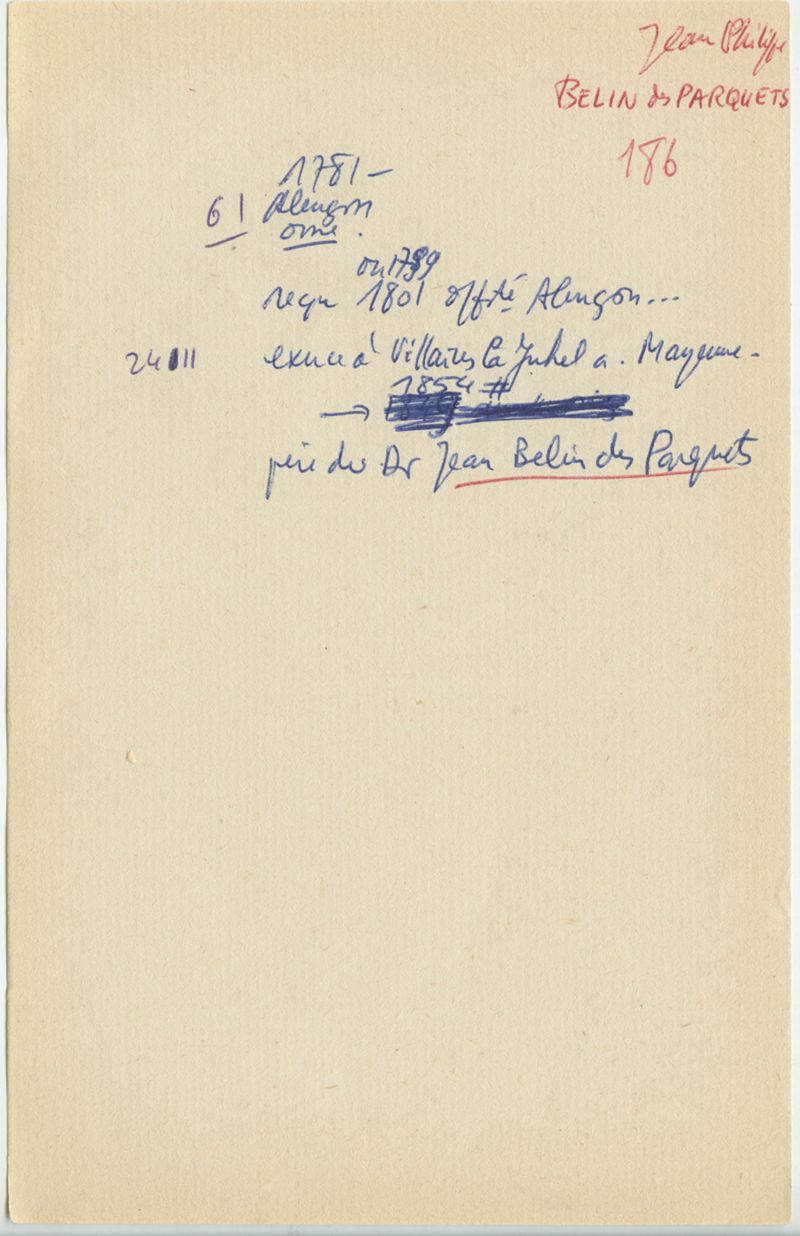 Jean Philippe
BELIN des PARQUETS
186
1781 –
61 Alençon
orne.
ou 1799
reçu 1801 offité Alençon...
24 11 exerce à Villaines la Juhel a. Mayenne.
1854 #
→
père du Dr Jean Belin des Parquets